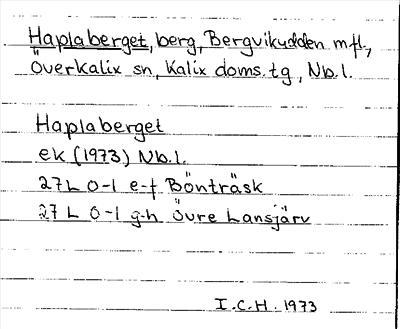 Haplaberget, berg, Bergvikudden mfl.,
Överkalix sn, Kalix doms. tg, Nb. l.
Haplaberget
ek (1973) Nb. l.
27 L 0-1 e-f Bönträsk
27 L 0-1 g-h Övre Lansjärv
I.C.H. 1973